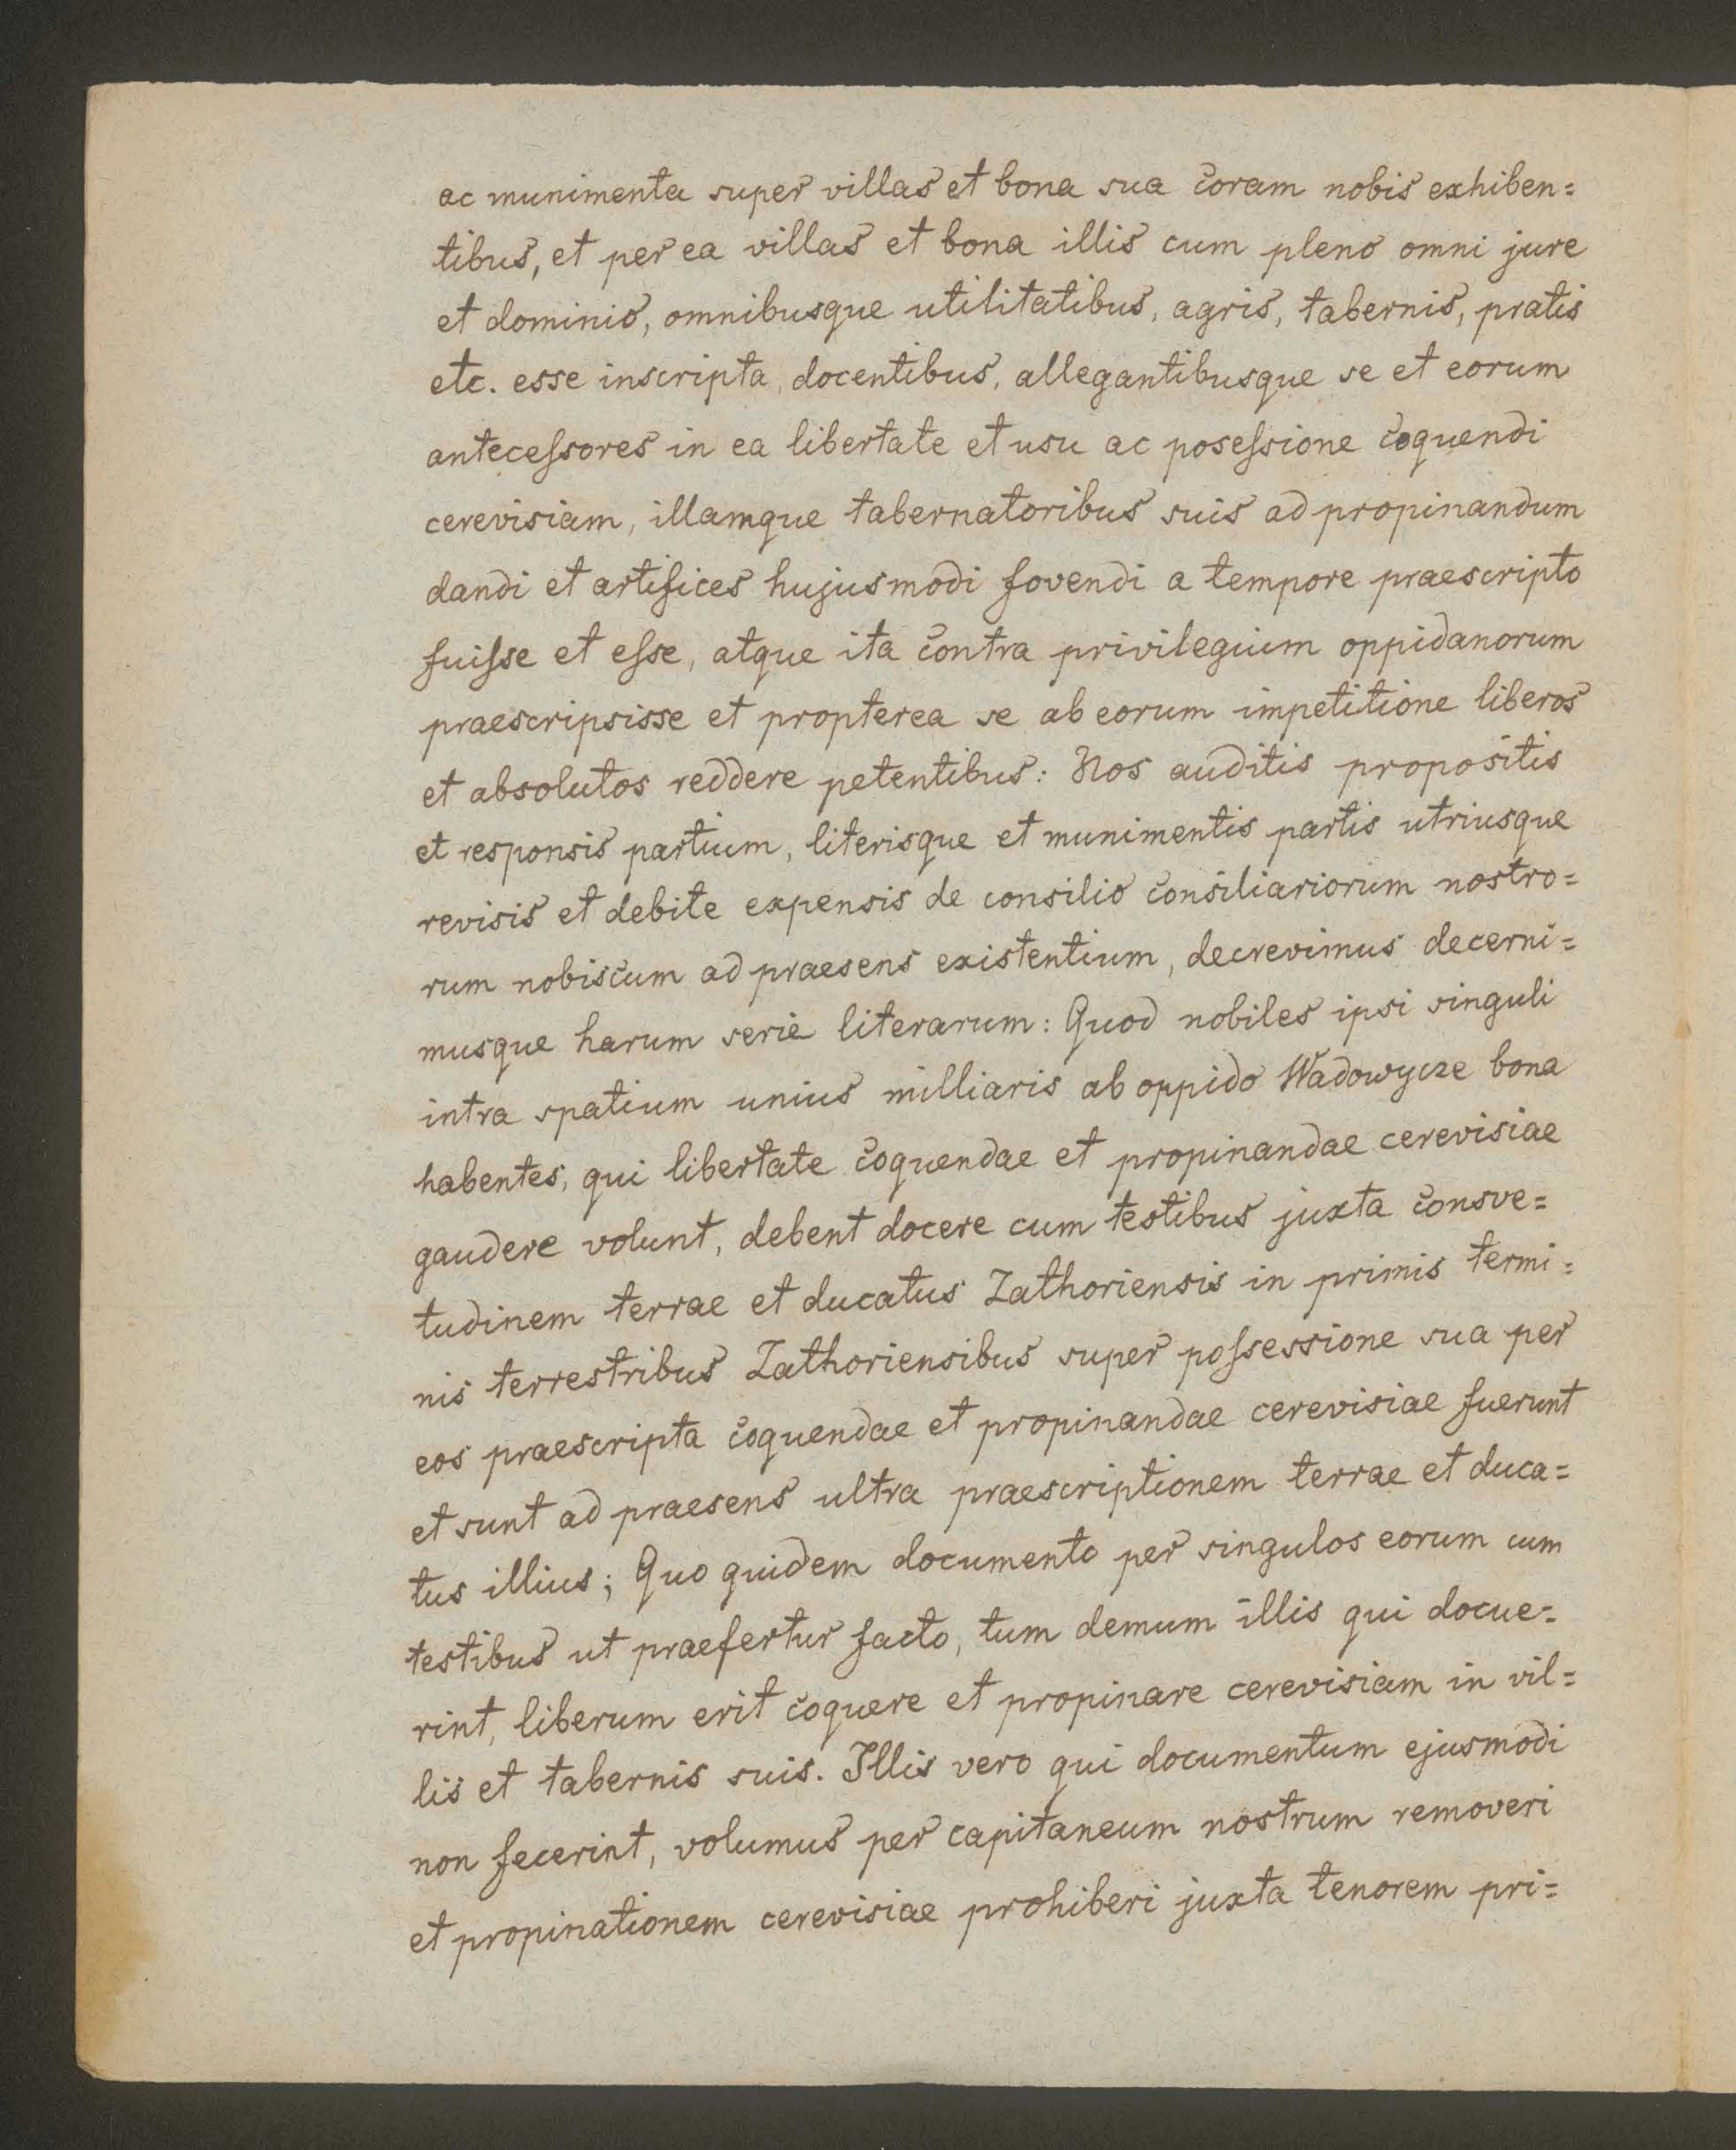 ac munimenta super villas et bona sua coram nobis exhiben=
tibus, et per ea villas et bona illis cum pleno omni jure
et dominio, omnibusque utilitatibus, agris, tabernis, pratis
etc. esse inscripta, docentibus, allegantibusque se et eorum
anteceſsores in ea libertate et usu ac poseſsione coquendi
cerevisiam, illamque tabernatoribus suis ad propinandum
dandi et artifices hujusmodi fovendi a tempore praescripto
fuiſse et eſse, atque ita contra privilegium oppidanorum
praescripsisse et propterea se ab eorum impetitione liberos
et absolutos reddere petentibus: Nos auditis propositis
et responsis partium, literisque et munimentis partis utriusque
revisis et debite expensis de consilio consiliariorum nostro=
rum nobiscum ad praesens existentium, decrevimus decerni=
musque harum serie literarum: Quod nobiles ipsi singuli
intra spatium unius milliaris ab oppido Wadowycze bona
habentes, qui libertate coquendae et propinandae cerevisiae
gaudere volunt, debent docere cum testibus juxta consve=
tudinem terrae et ducatus Zathoriensis in primis termi=
nis terrestribus Zathoriensibus super poſsessione sua per
eos praescripta coquendae et propinandae cerevisiae fuerunt
et sunt ad praesens ultra praescriptionem terrae et duca=
tus illius; Quo quidem documento per singulos eorum cum
testibus ut praefertur facto, tum demum illis qui docue=
rint, liberum erit coquere et propinare cerevisiam in vil=
lis et tabernis suis. Illis vero qui documentum ejusmodi
non fecerint, volumus per capitaneum nostrum removeri
et propinationem cerevisiae prohiberi juxta tenorem pri=